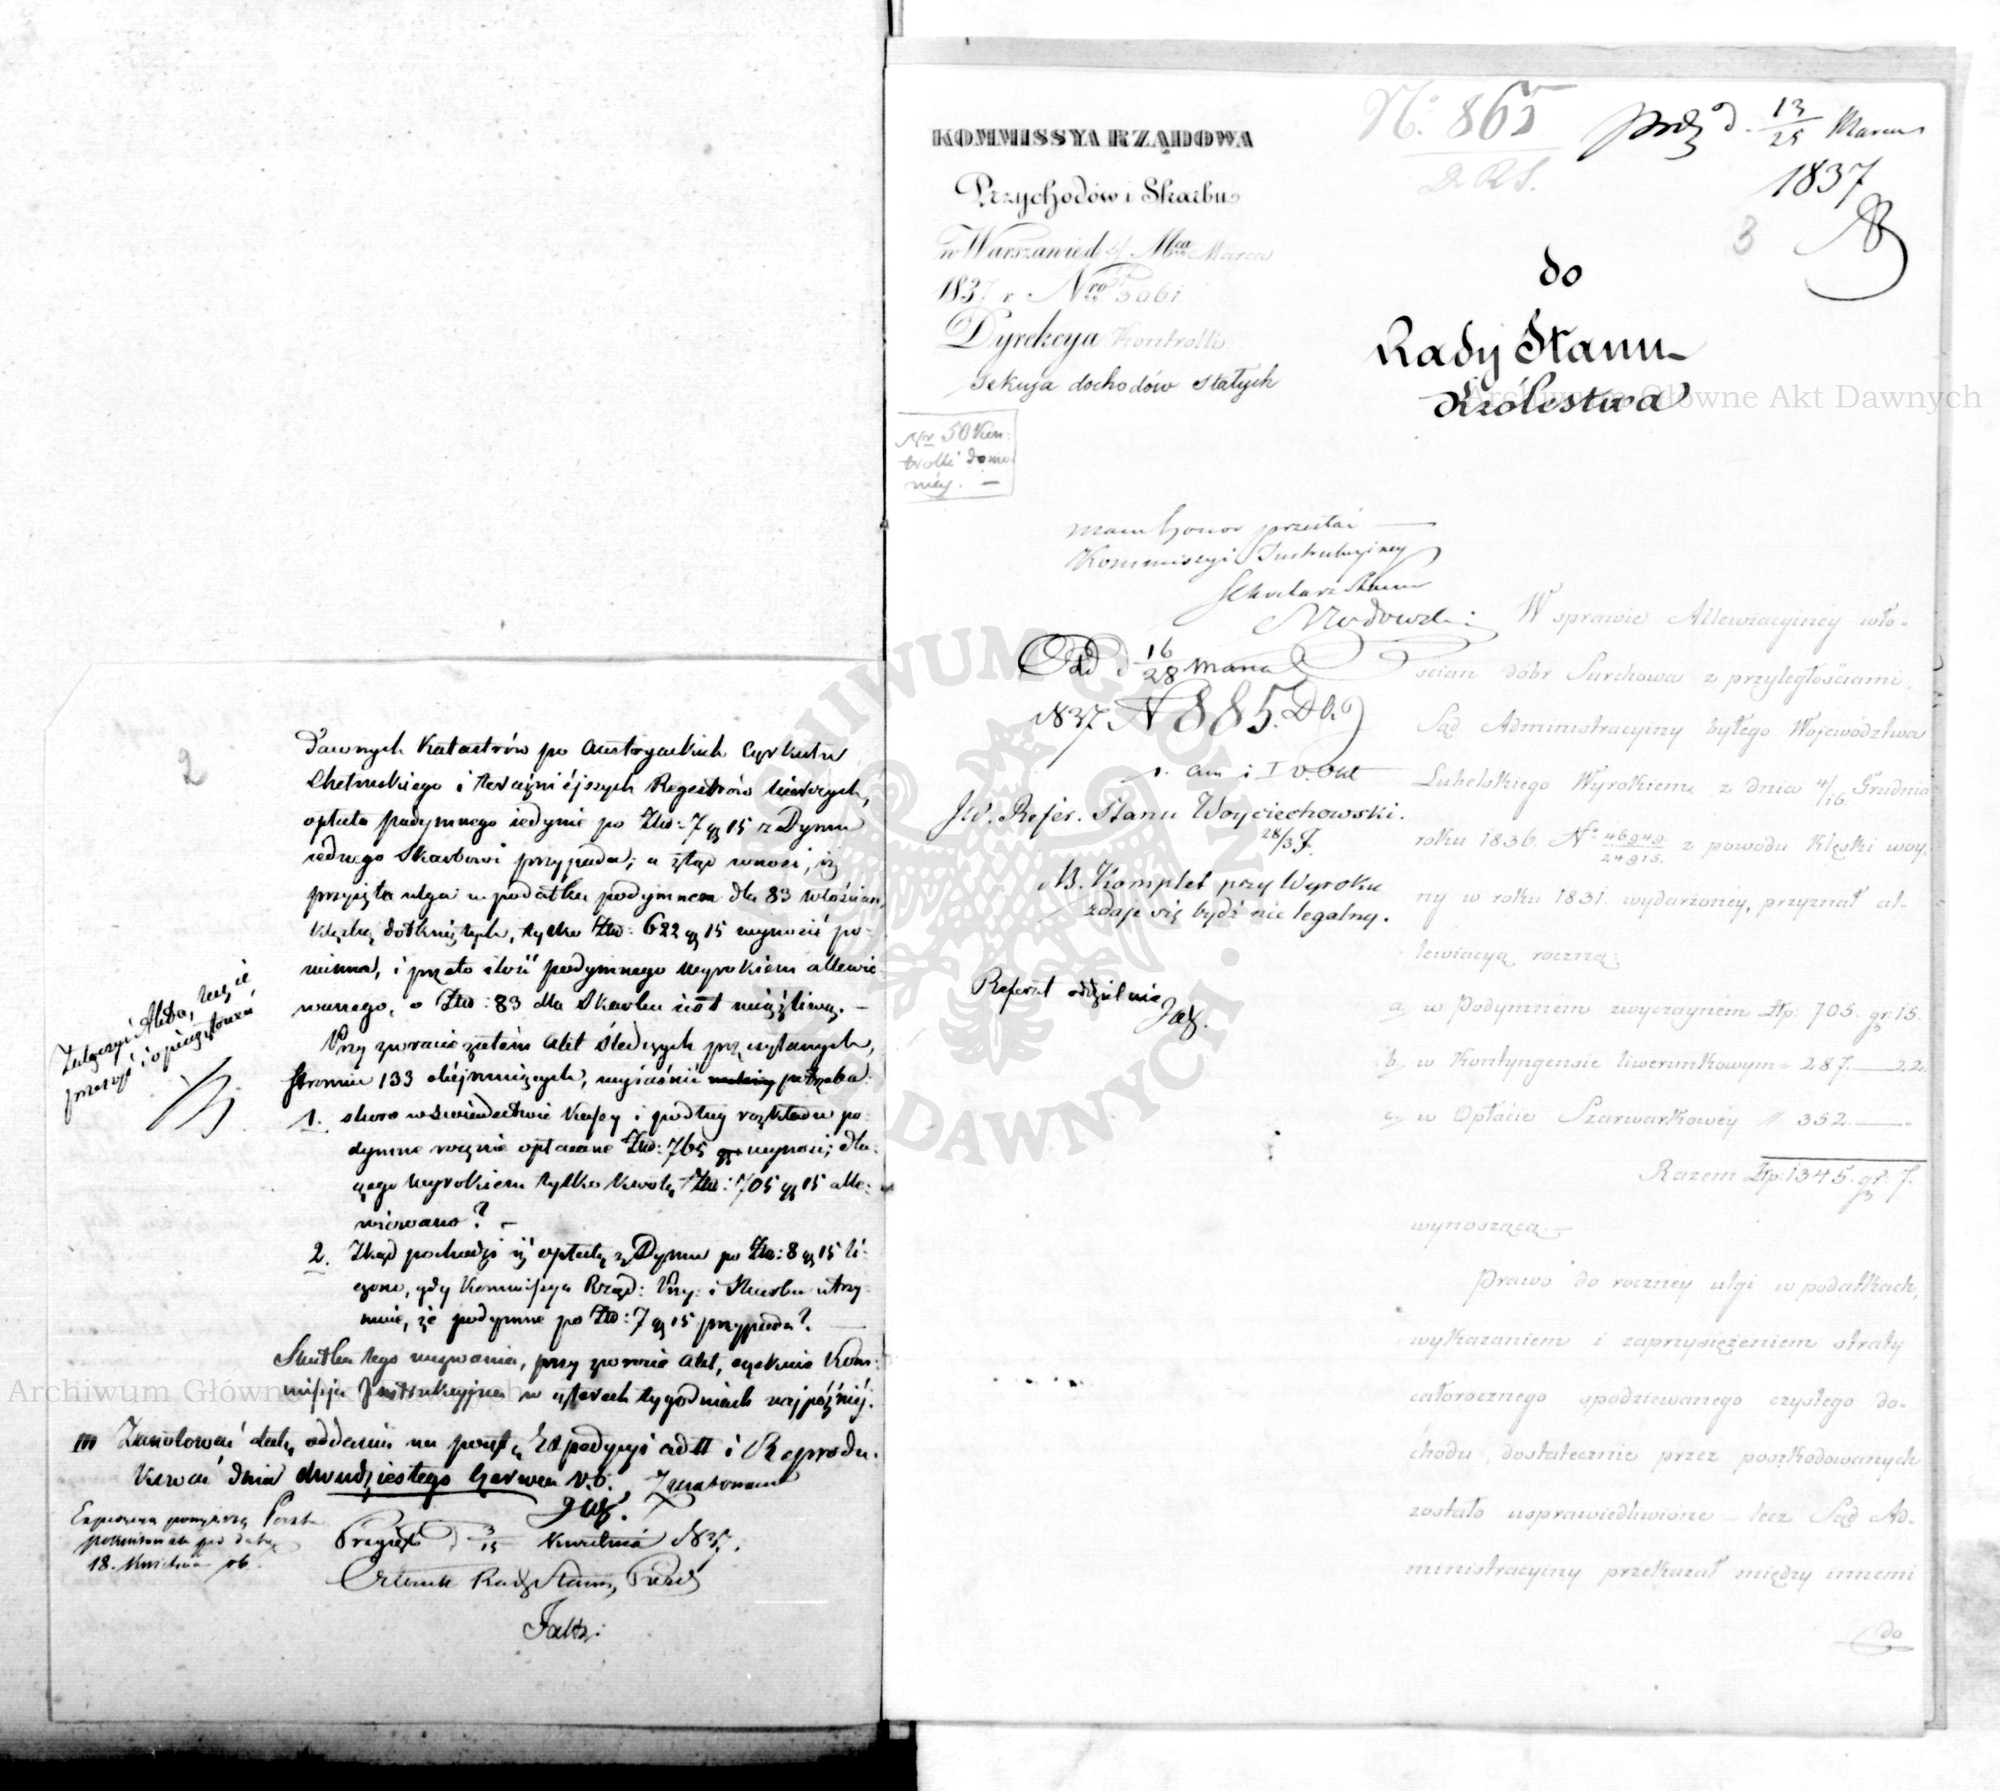 2
dawnych Katastrów po Austryackich Cyrkułu
Chełmskiego i teraźniéjszych Regestrów bierczych,
opłata podymnego iedynie po Złt: 7 gr 15 z Dymu
iednego Skarbowi przypada; a ztąd wnosi, iż
przyięta ulga w podatku podymnem dla 83 włościan,
klęską dotkniętych, tylko Złt: 622 gr 15 wynosić po-
winna, i przeto ilość podymnego wyrokiem allewio-
wanego, o Złt: 83 dla Skarbu iest uciążliwą. —
Przy zwrocie zatém Akt śledczych przesyłanych,
stronic 133 obéjmuiących, wyiaśnić potrzeba:
1. skoro w świadectwie Kassy i podług rozkładu po-
dymne rocznie opłacane Złt: 765 wynosi; dla-
czego wyrokiem tylko kwotę Złt: 705 gr 15 alle-
wiowano? —
2. Zkąd pochodzi iż opłatę z Dymu po Złt: 8 gr 15 li-
czono, gdy Kommissya Rząd: Przy: i Skarbu utrzy-
muie, że podymne po Złt: 7 gr 15 przypada? —
Skutku tego wezwania, przy zwrocie Akt, oczekuie Kom-
missya Instrukcyjna w czterech tygodniach najpóźniéj.
Zanotować datę oddania na pocztę Expedycyi ad III i Reprodu-
kować dnia dwudziestego Czerwca r. b.
Załączyć Akta, zszyć
przeszyć i opieczętować
Przyięto d 3/15 Kwietnia 1837.
Członek Rady Stanu, Prezd
18. Kwietnia rb.
KOMMISSYA RZĄDOWA
Przychodów i Skarbu
w Warszawie d Mca Marca
1837 r Nro 5061
Dyrekcya Kontrolli
Sekcyja dochodów stałych
Nr 50 Kon-
trolli docho
No. 865
D. R. S.
prez d. 13/25 Marca
1837
3
do
Rady Stanu
Królestwa
mam honor przesłać —
Kommissyi Instrukcyjney
Sekretarz Stanu
Odd d 16/28 Marca
1837 N 885.
JW. Refer. Stanu Woyciechowski.
28/3 J.
NB. Komplet przy Wyroku
zdaje się bydź nie legalny.
Referat oddzielnie
W sprawie Allewiacyiney wło-
ścian dóbr Surchowa z przyległościami,
Sąd Administracyiny byłego Województwa
Lubelskiego Wyrokiem z dnia 4/16 Grudnia
roku 1836. No 46949/24915. z powodu klęski woy-
ny w roku 1831. wydarzoney, przyznał al-
lewiacyą roczną:
a. w Podymnem zwyczaynem Złp: 705. gr: 15.
b. w Kontyngensie liwerunkowym " 287. — 22.
c. w Opłacie Szarwarkowéy " 352. —
Razem Złp: 1345. gr: 7.
wynoszącą. —
Prawo do roczney ulgi w podatkach,
wykazaniem i zaprzysiężeniem straty
całorocznego spodziewanego czystego do-
chodu, dostatecznie przez poszkodowanych
zostało usprawiedliwione — lecz Sąd Ad-
ministracyiny przekazał między innemi
do
Archiwum Główne Akt Dawnych
Archiwum Główne Akt Dawnych
ARCHIWUM GŁÓWNE AKT DAWNYCH